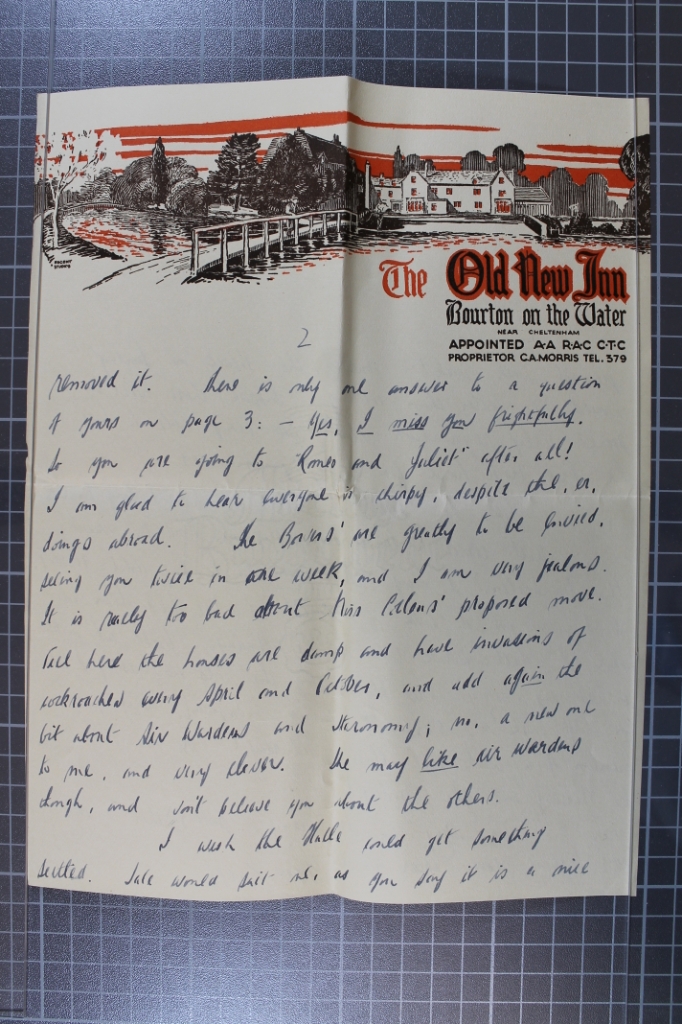 The Old New Inn
Bourton on the Water
NEAR CHELTENHAM
APPOINTED A·A R·A·C C·T·C
PROPRIETOR C.A.MORRIS TEL. 379
2
removed it. There is only one answer to a question
of yours on page 3: – Yes, I miss you frightfully.
So you are going to "Romeo and Juliet" after all!
I am glad to hear everyone is chirpy, despite the, er,
doings abroad. The Bowers' are greatly to be envied,
seeing you twice in one week, and I am very jealous.
It is really too bad about Miss proposed move.
Tell here the houses are damp and have invasions of
cockroaches every April and October, and add again the
bit about Air Wardens and Astronomy; no, a new one
to me, and very clever. She may like air wardens
though, and won't believe you about the others.
I wish the Halle could get something
settled. Sale would suit me, as you say it is a nice